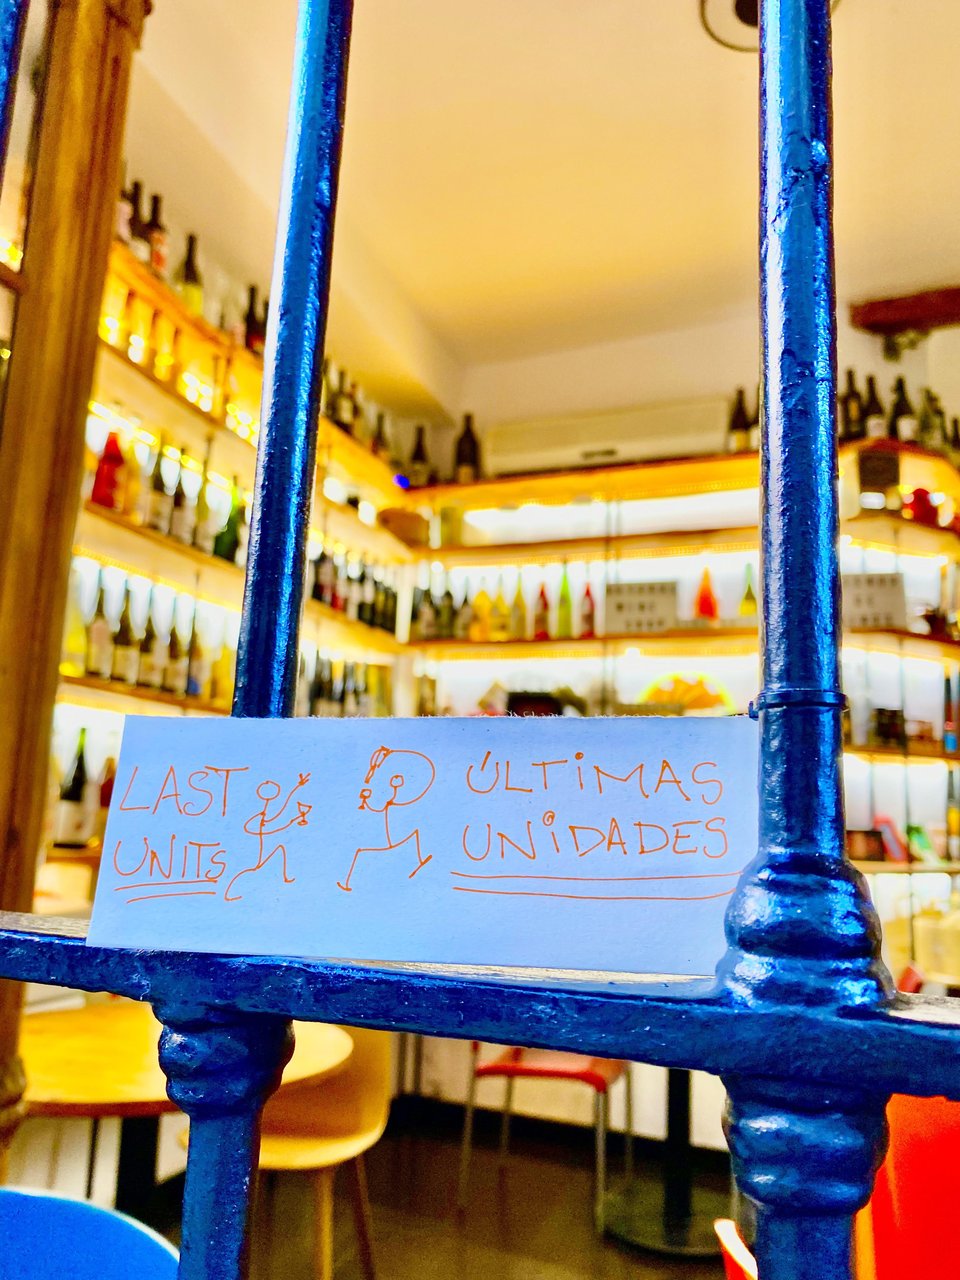 LAST
UNITS
ÚLTIMAS
UNIDADES